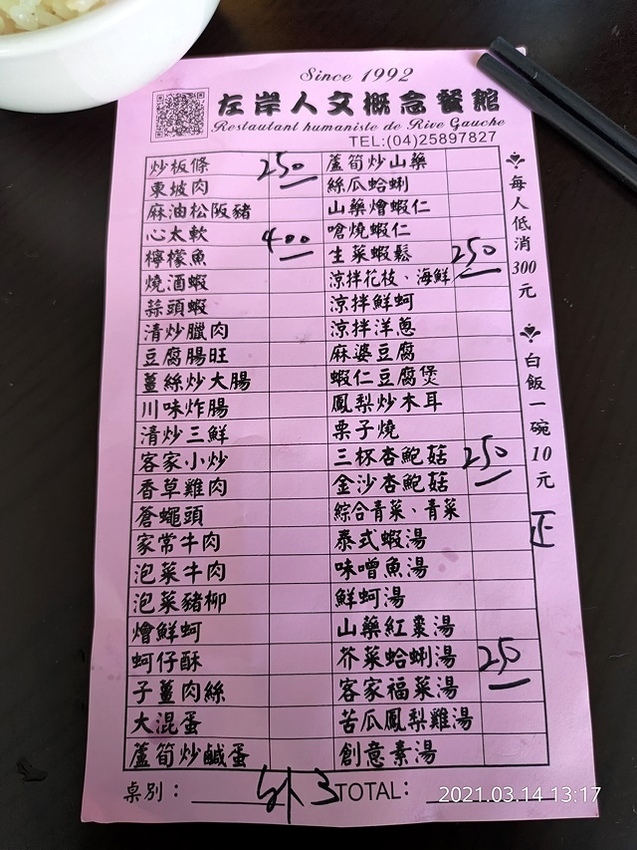 Since 1992
左岸人文概念餐館
Restautant humaniste de Rive Gauche
TEL:(04)25897827
炒板條 250
東坡肉
麻油松阪豬
心太軟 400
檸檬魚
燒酒蝦
蒜頭蝦
清炒臘肉
豆腐腸旺
薑絲炒大腸
川味炸腸
清炒三鮮
客家小炒
香草雞肉
蒼蠅頭
家常牛肉
泡菜牛肉
泡菜豬柳
燴鮮蚵
蚵仔酥
子薑肉絲
大混蛋
蘆筍炒鹹蛋
蘆筍炒山藥
絲瓜蛤蜊
山藥燴蝦仁
嗆燒蝦仁
生菜蝦鬆 250
涼拌花枝、海鮮
涼拌鮮蚵
涼拌洋蔥
麻婆豆腐
蝦仁豆腐煲
鳳梨炒木耳
栗子燒
三杯杏鮑菇 250
金沙杏鮑菇
綜合青菜、青菜
泰式蝦湯
味噌魚湯
鮮蚵湯
山藥紅棗湯
芥菜蛤蜊湯 250
客家福菜湯
苦瓜鳳梨雞湯
創意素湯
每人低消300元
白飯一碗10元
正
桌別： 外3
TOTAL：
2021.03.14 13:17